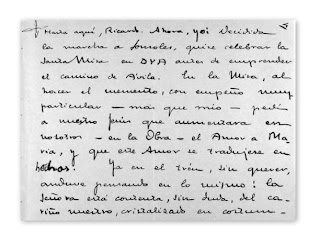 Hasta aquí, Ricardo. Ahora, yo: Decidida
la marcha a Sonsoles, quise celebrar la
Santa Misa en DYA antes de emprender
el camino de Ávila. En la Misa, al
hacer el memento, con empeño muy
particular – más que mío – pedí
a nuestro Jesús que aumentara en
nosotros – en la Obra – el Amor a Ma-
ría, y que este Amor se tradujese en
hechos. Ya en el tren, sin querer,
anduve pensando en lo mismo: la
Señora está contenta, sin duda, del ca-
riño nuestro, cristalizado en costum-